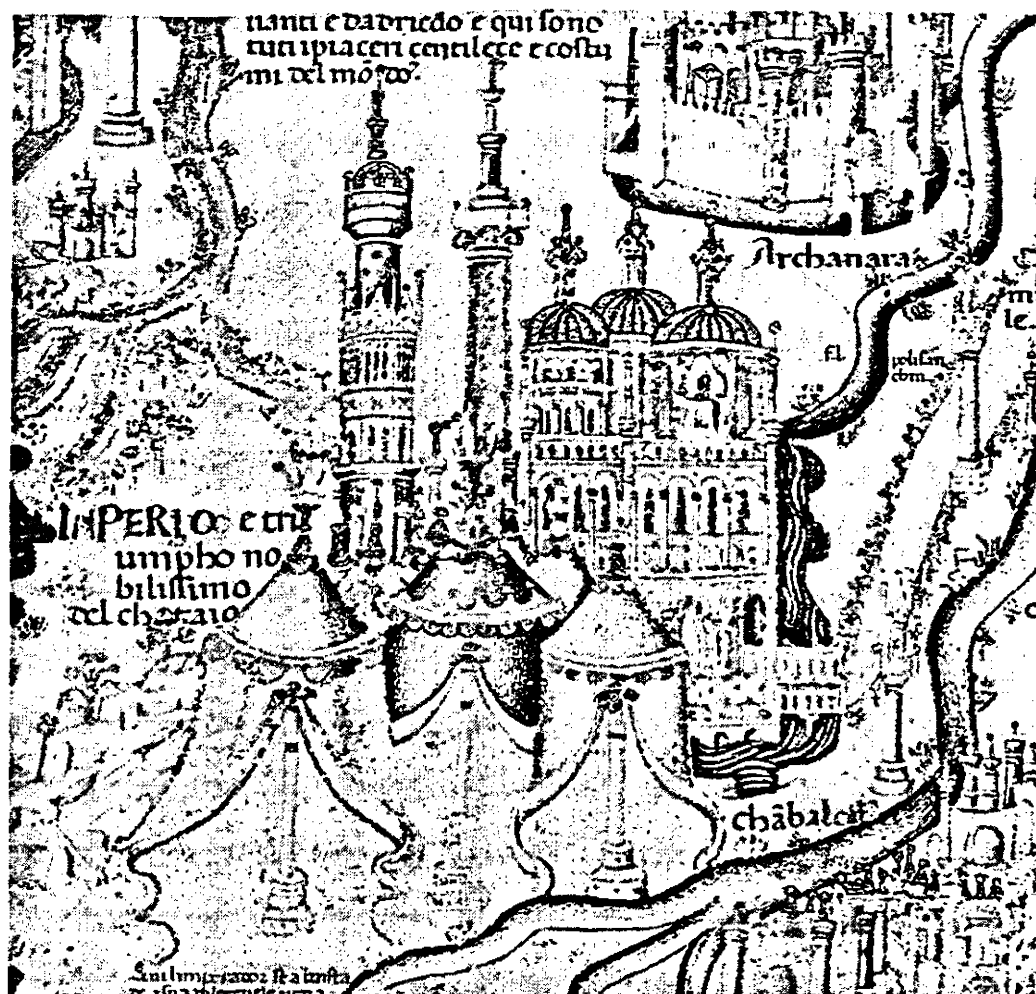 nanti e dadriedo e qui sono
tuti ipiaceri çentileçe e costu
mi del mōdo
Archanara
fl
polisan
INPERIO e tri
umpho no
bilissimo
del chataio
chābalech